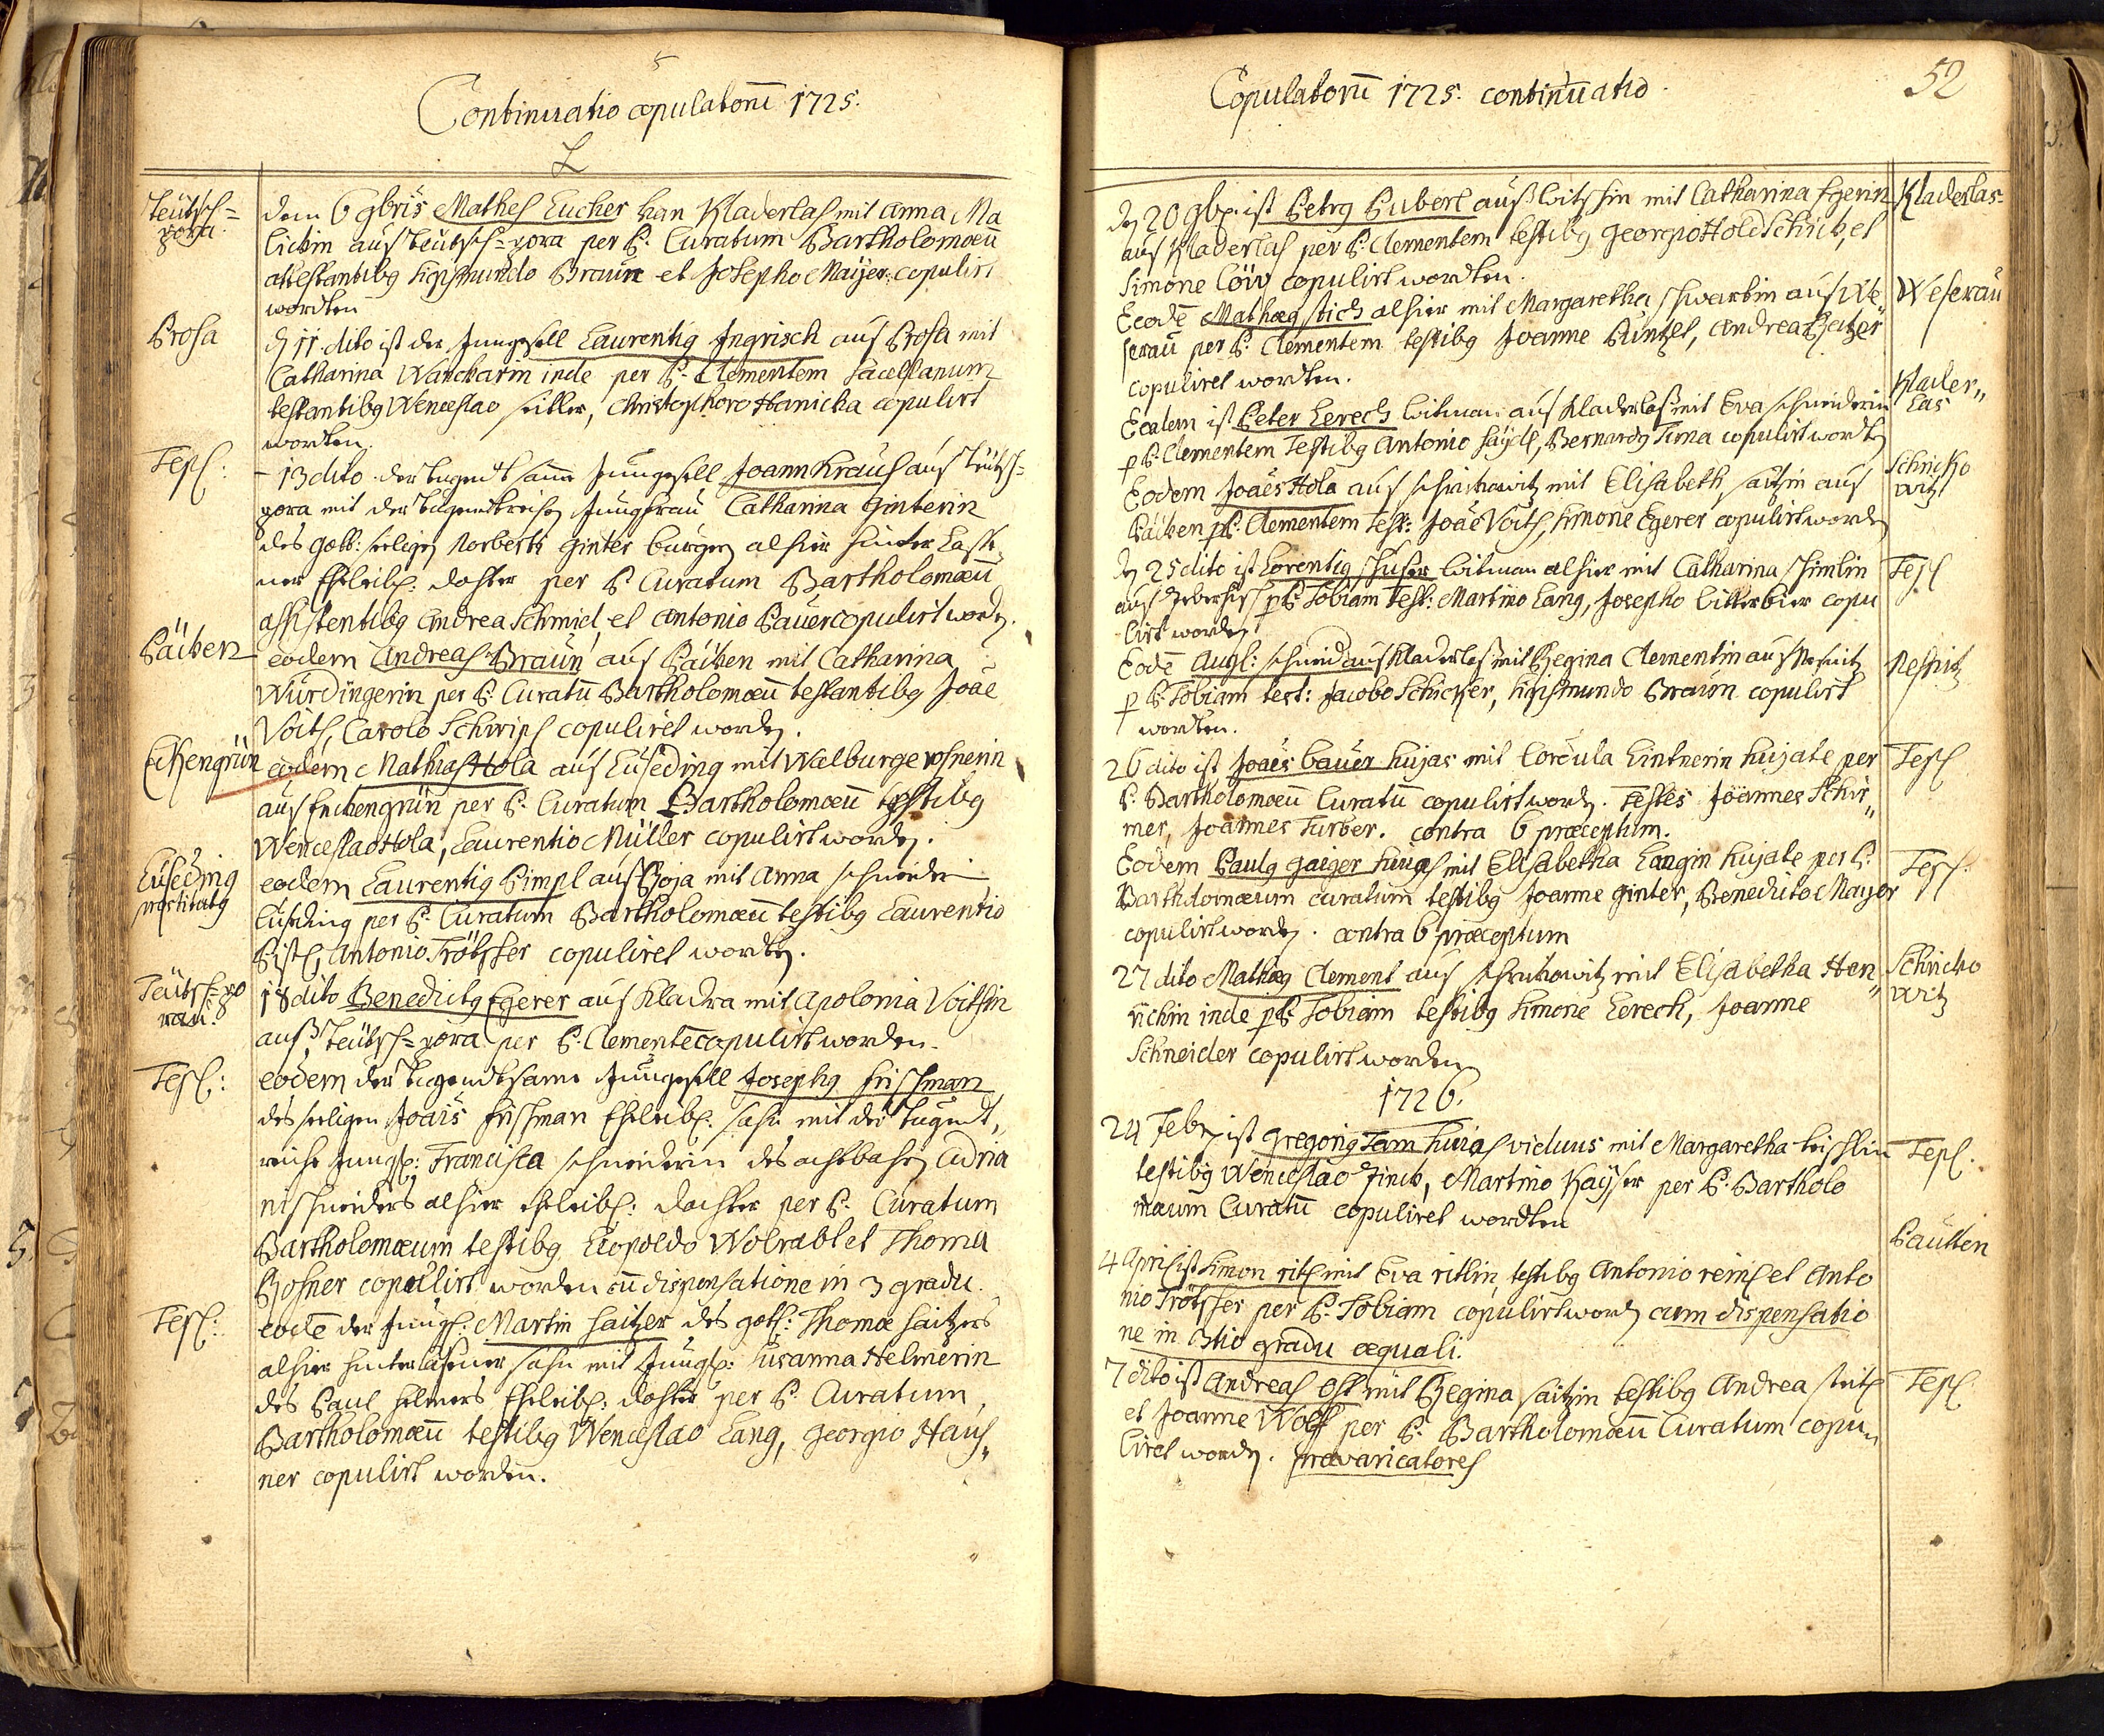 Continuatio copulatorum 1725.
Teütsch=
gora.
dem 6 9bris Mathes Eucher von Kladerlas mit Anna Ma
lickin aus Teütsch=gora per P. Curatum Bartholomæū
attestantibg Sigismundo Braun et Josepho Maÿer copulirt
wordten
Prosa
d 11 dito ist der Junggesell Laurentig Ingrisch aus Prosa mit
Catharina Wanckarin inde per P. Clementem Sacellanum
testantibg Wenceslao , Christophoro Hanicka copulirt
wordten.
Tepl:
- 13 dito der tugendtsame Junggesell Joann Kraus aus teütsch=
gora mit der tugendtreichen Jungfrau Catharina Ginterin
des gott: seeligen Norberti Ginter burgers alhier hinterlasse
ner Eheleibl: dochter per P. Curatum Bartholomæū
assistentibg Andrea Schmid, et Antonio Bauer copulirt worden.
Päuten
eodem Andreas Braun aus Päuten mit Catharina
Würdingerin per P. Curatū Bartholomæū testantibg Joāe
Voith, Carolo Schwips copuliret worden.
Enckengrün
eodem Mathias Hola aus Luseding mit Walburge
aus Enckengrün per P. Curatum Bartholomæū testibg
Wenceslao Hola, Laurentio Müller copulirt worden.
Luseding
prostitutg
eodem Laurentig Pimpl aus Roja mit Anna schneider
Luseding per P. Curatum Bartholomæū testibg Laurentio
Antonio Trötscher copuliret wordten.
Teütsch go
rau.
18 dito Benedictg Egerer aus Kladra mit Apolonia Voithin
auß Teütsch=gora per P. Clementē copulirt worden.
Tepl:
eodem der tugendtsame Junggesell Josephg Frischman
des seeligen Joāis Frischman Eheleibl: sohn mit der tugendt,
reiche Jungf: Francisca schneiderin des achtbahren Adria
ni schneiders alhier eheleibl: dochter per P. Curatum
Bartholomæum testibg Leopoldo Wolrabl et Thoma
Rosner copulirt worden cū dispensatione in 3 gradu.
Tepl:
eodē der Jungs: Martin Saitzer des gott: Thomæ Saitzers
alhier hinterlasener sohn mit Jungf: Susanna Helmerin
des Paul Helmers Eheleibl: dochter per P. Curatum
Bartholomæū testibg Wenceslao Lang, Georgio Haus„
ner copulirt worden.
Copulatorū 1725. continuatio.
52
den 20 9bris ist Petrg Puberl auß mit Catharina Egerin
aus Kladerlas per P. Clementem testibg Georgio Holdschick, et
Simone Löw copulirt wordten.
Kladerlas
Eodē Mathæg stich alhier mit Margaretha schwartzin aus We
serau per P. Clementem testibg Joanne Küntzel, Andrea Hertzer
copuliret wordten.
Weserau
Eodem ist Peter Lerech witman aus Kladerlaß mit Eva schneiderin
p P. Clementem Testibg Antonio Haÿdl, Bernardg Tirna copulirt wordten
Klader„
las
Eodem Joāes Hola aus schrickowitz mit Elisabeth saitzin aus
Päuten p P. Clementem Test: Joāe Voith, Simone Egerer copulirt worden
Schricko
witz
den 25 dito ist Lorentig witman alhier mit Catharina
aus p P. Tobiam Test: Martino Lang, Josepho bitterbier copu
lirt worden
Tepl
Eodē Augl: schneid aus Kladerlaß mit Regina Clementin aus Neschitz
p P. Tobiam test: Jacobo Schicker, Sigismundo Braun copulirt
wordten.
Neschitz
26 dito ist Joāes bauer hujas mit Cordula Lintnerin hujate per
P. Bartholomæū Curatū copulirt worden. Testes Joannes Schir„
mer, Joannes Furber. contra 6 præceptum.
Tepl
Eodem Paulg Gaiger hujas mit Elisabetha Langin hujate per P.
Bartholomæum curatum testibg Joanne Ginter, Benedicto Mayer
copulirt worden. contra 6 præceptum
Tepl.
27 dito Mathæg Clement aus schrickowitz mit Elisabetha Hen„
richin inde p P. Tobiam testibg Simone Lerech, Joanne
Schneider copulirt worden
Schricko
witz
1726.
24 Feb ist Gregorig Tam hujas viduus mit Margaretha
testibg Wenceslao Finck, Martino Kaÿser per P. Bartholo
mæum Curatū copuliret wordten
Tepl:
Pautten
4 Apris ist Simon ritl mit Eva ritlin, testibg Antonio et Anto
nio Trötscher per P. Tobiam copulirt worden cum dispensatio
ne in 3tio gradu æquali.
7 dito ist Andreas Ost mit Regina saitzin testibg Andrea
et Joanne Wolff per P. Bartholomæū Curatum copu„
liret worden. prævaricatores
Tepl.